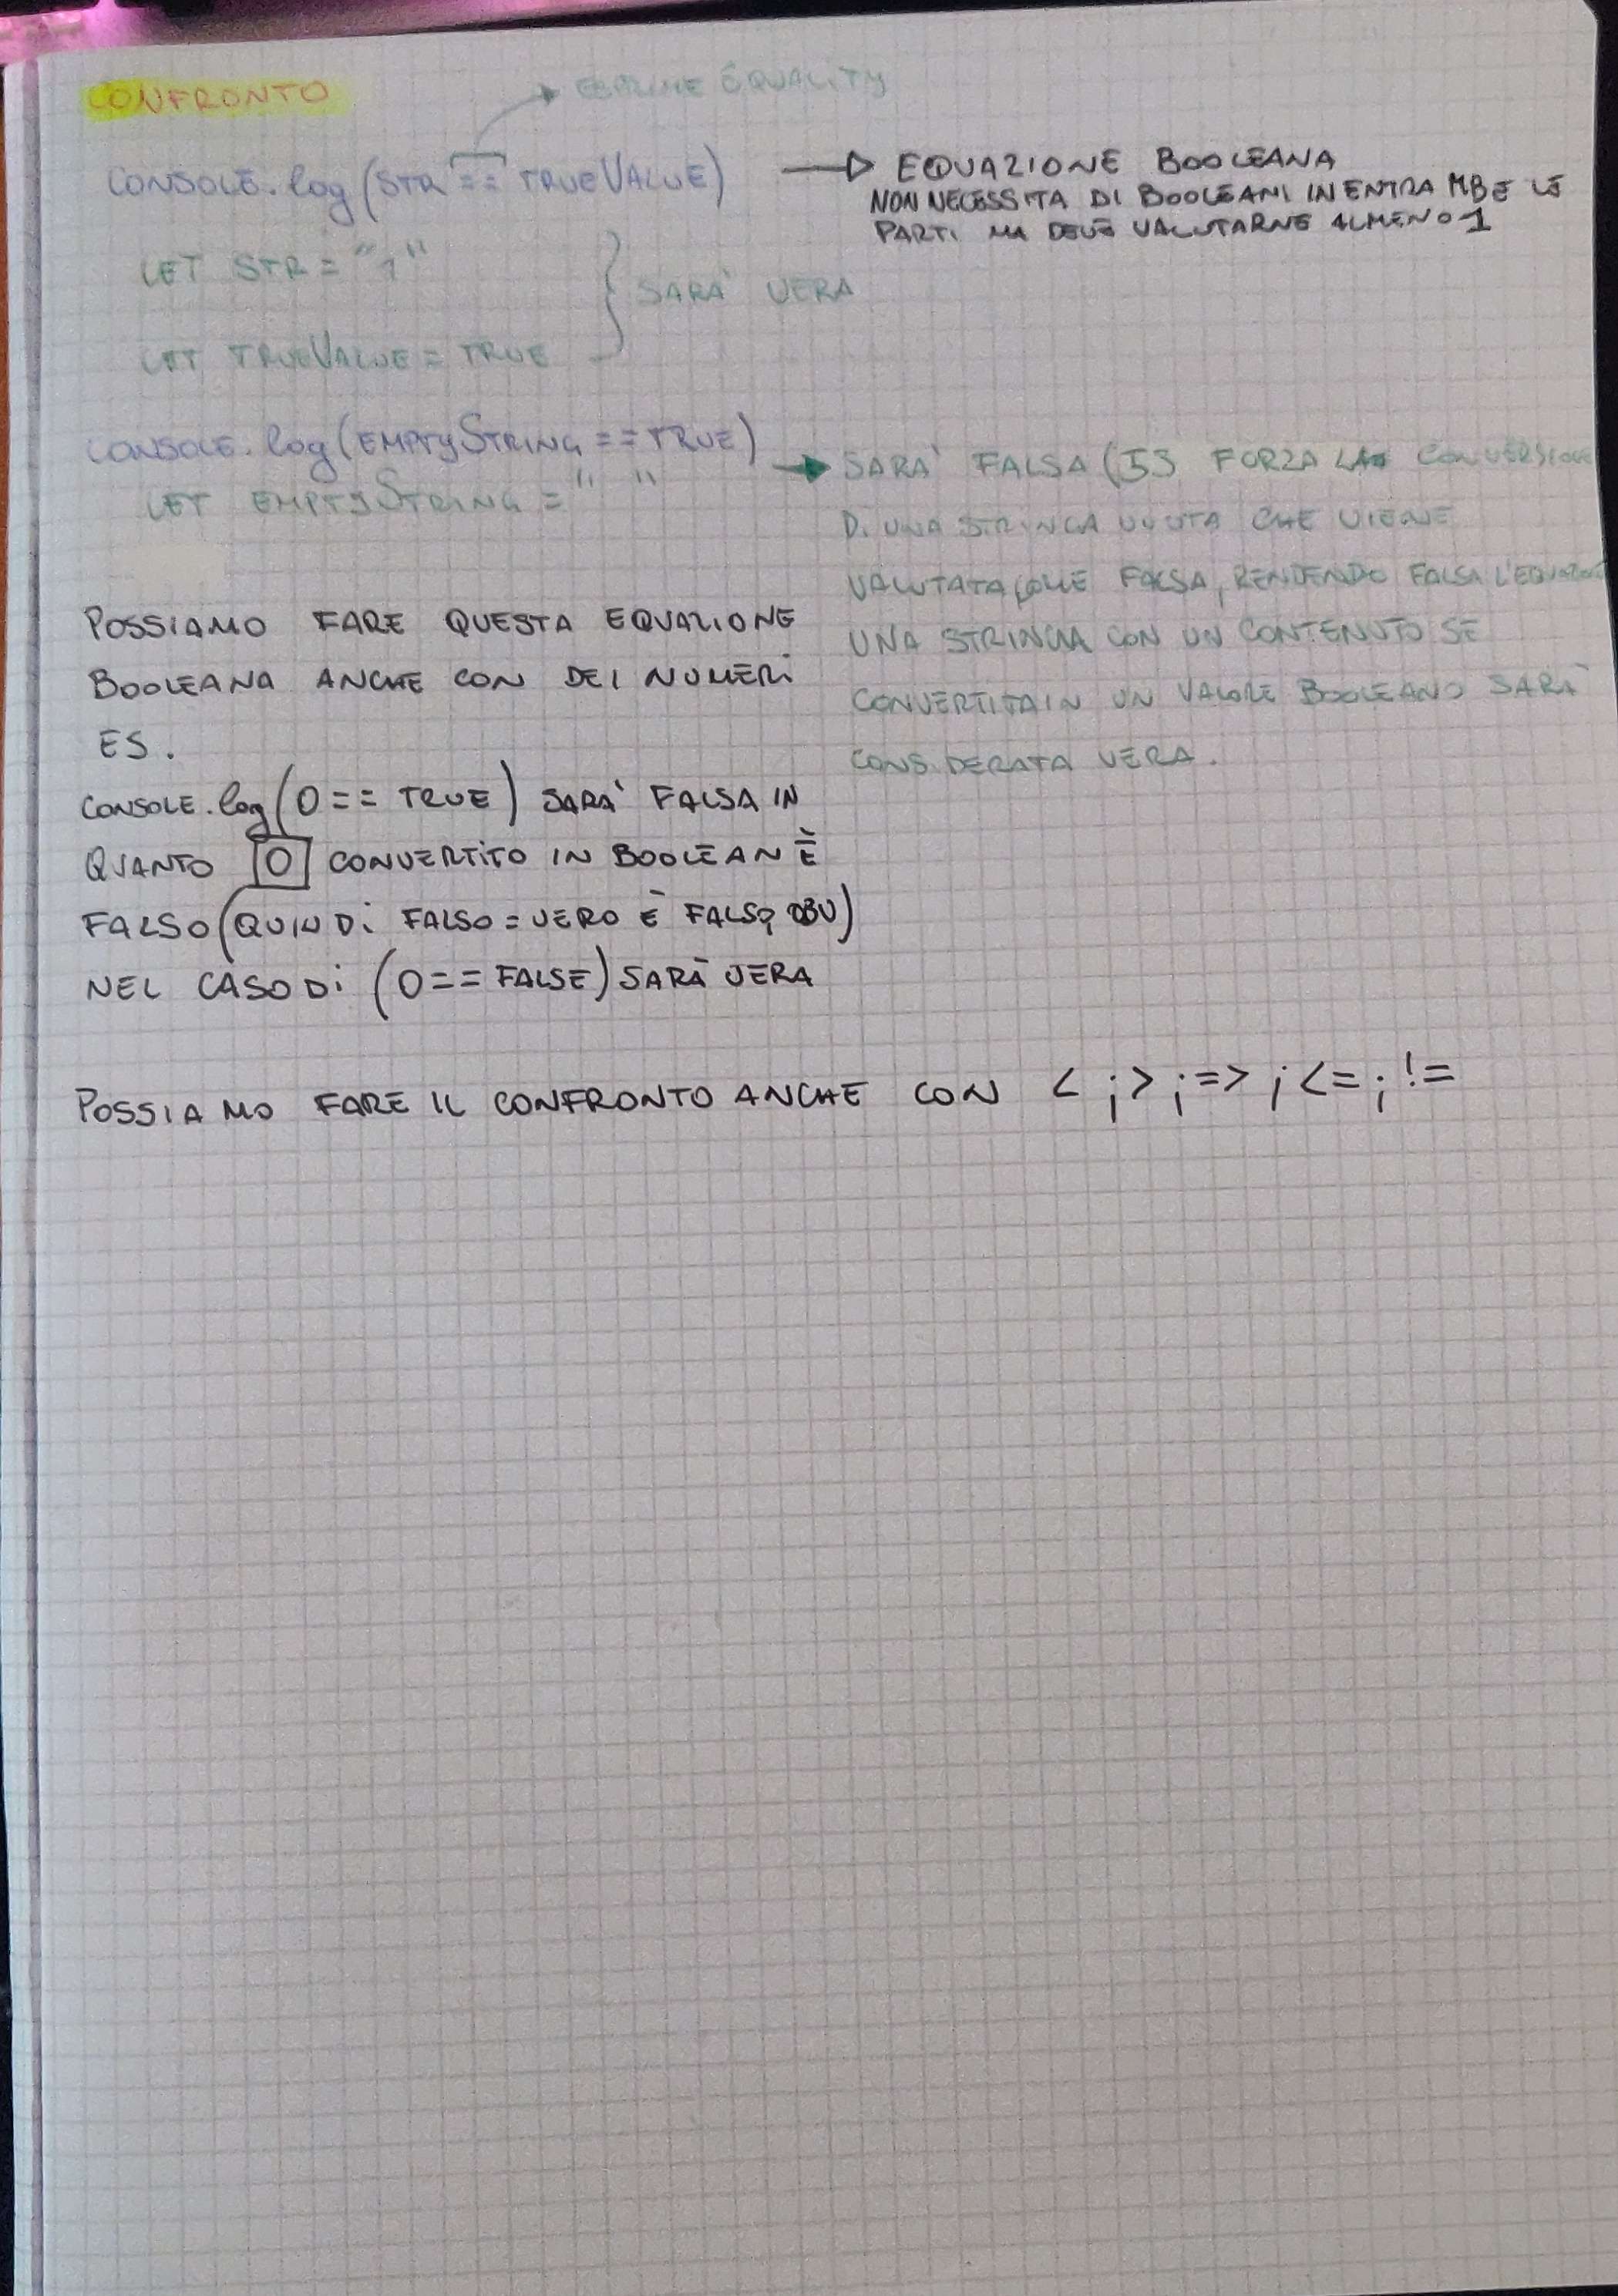 CONFRONTO
ESPRIME EQUALITY
CONSOLE.log(STR == TRUEVALUE)
EQUAZIONE BOOLEANA
NON NECESSITA DI BOOLEANI IN ENTRAMBE LE
PARTI MA DEVE VALUTARNE ALMENO 1
LET STR = "1"
LET TRUEVALUE = TRUE
SARA' VERA
CONSOLE.log(EMPTYSTRING == TRUE)
LET EMPTYSTRING = " "
SARA' FALSA (JS FORZA LA CONVERSIONE
DI UNA STRINGA VUOTA CHE VIENE
VALUTATA COME FALSA, RENDENDO FALSA L'EQUAZIONE
UNA STRINGA CON UN CONTENUTO SE
CONVERTITA IN UN VALORE BOOLEANO SARÀ
CONSIDERATA VERA.
POSSIAMO FARE QUESTA EQUAZIONE
BOOLEANA ANCHE CON DEI NUMERI
ES.
CONSOLE.log(0 == TRUE) SARA' FALSA IN
QUANTO 0 CONVERTITO IN BOOLEAN È
FALSO (QUINDI FALSO = VERO È FALSO, OBV)
NEL CASO DI (0 == FALSE) SARÀ VERA
POSSIAMO FARE IL CONFRONTO ANCHE CON < ; > ; => ; <= ; !=